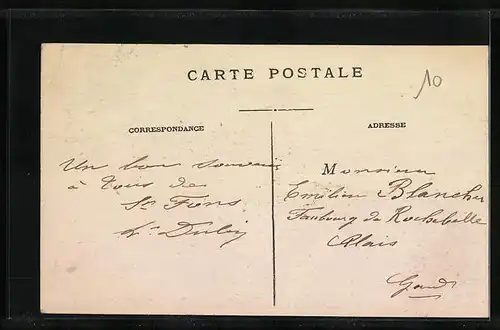 CARTE POSTALE
10
CORRESPONDANCE
ADRESSE
Un bon souvenir
à tous de
St Fons
Monsieur
Emilien Blancher
Faubourg de Rochebelle
Alais
Gard